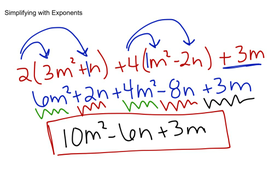 Simplifying with Exponents
2(3m²+1n)+4(1m²-2n)+3m
6m²+2n+4m²-8n+3m
10m²-6n+3m